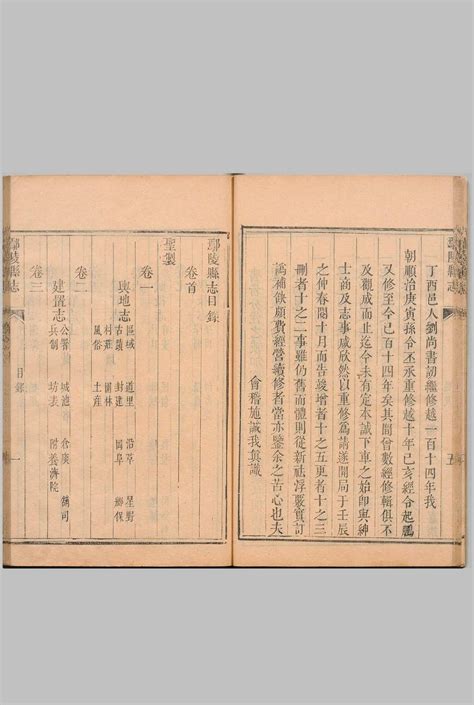 鄢陵縣志
五
丁酉邑人劉尚書訒繼修越一百十四年我
朝順治庚寅孫令丕承重修越十年己亥經令起鵬
又修至今已百十四年矣其間曾數經修輯俱不
及觀成而止迄今未有定本誠下車之始即與紳
士商及志事咸欣然以重修為請遂開局于壬辰
之仲春閱十月而告竣增者十之五更者十之三
刪者十之二事雖仍舊而體則從新祛浮覈實訂
譌補缺頗費經營續修者當亦鑒余之苦心也夫
會稽施誠我真識
鄢陵縣志目錄
卷首
聖製
卷一
輿地志
區域 道里 星野
古蹟 封建
村莊 園林
風俗 土產
卷二
建置志
公署 城池 倉廒
兵制 坊表 附養濟院
卷三
鄢陵縣志
目錄
一